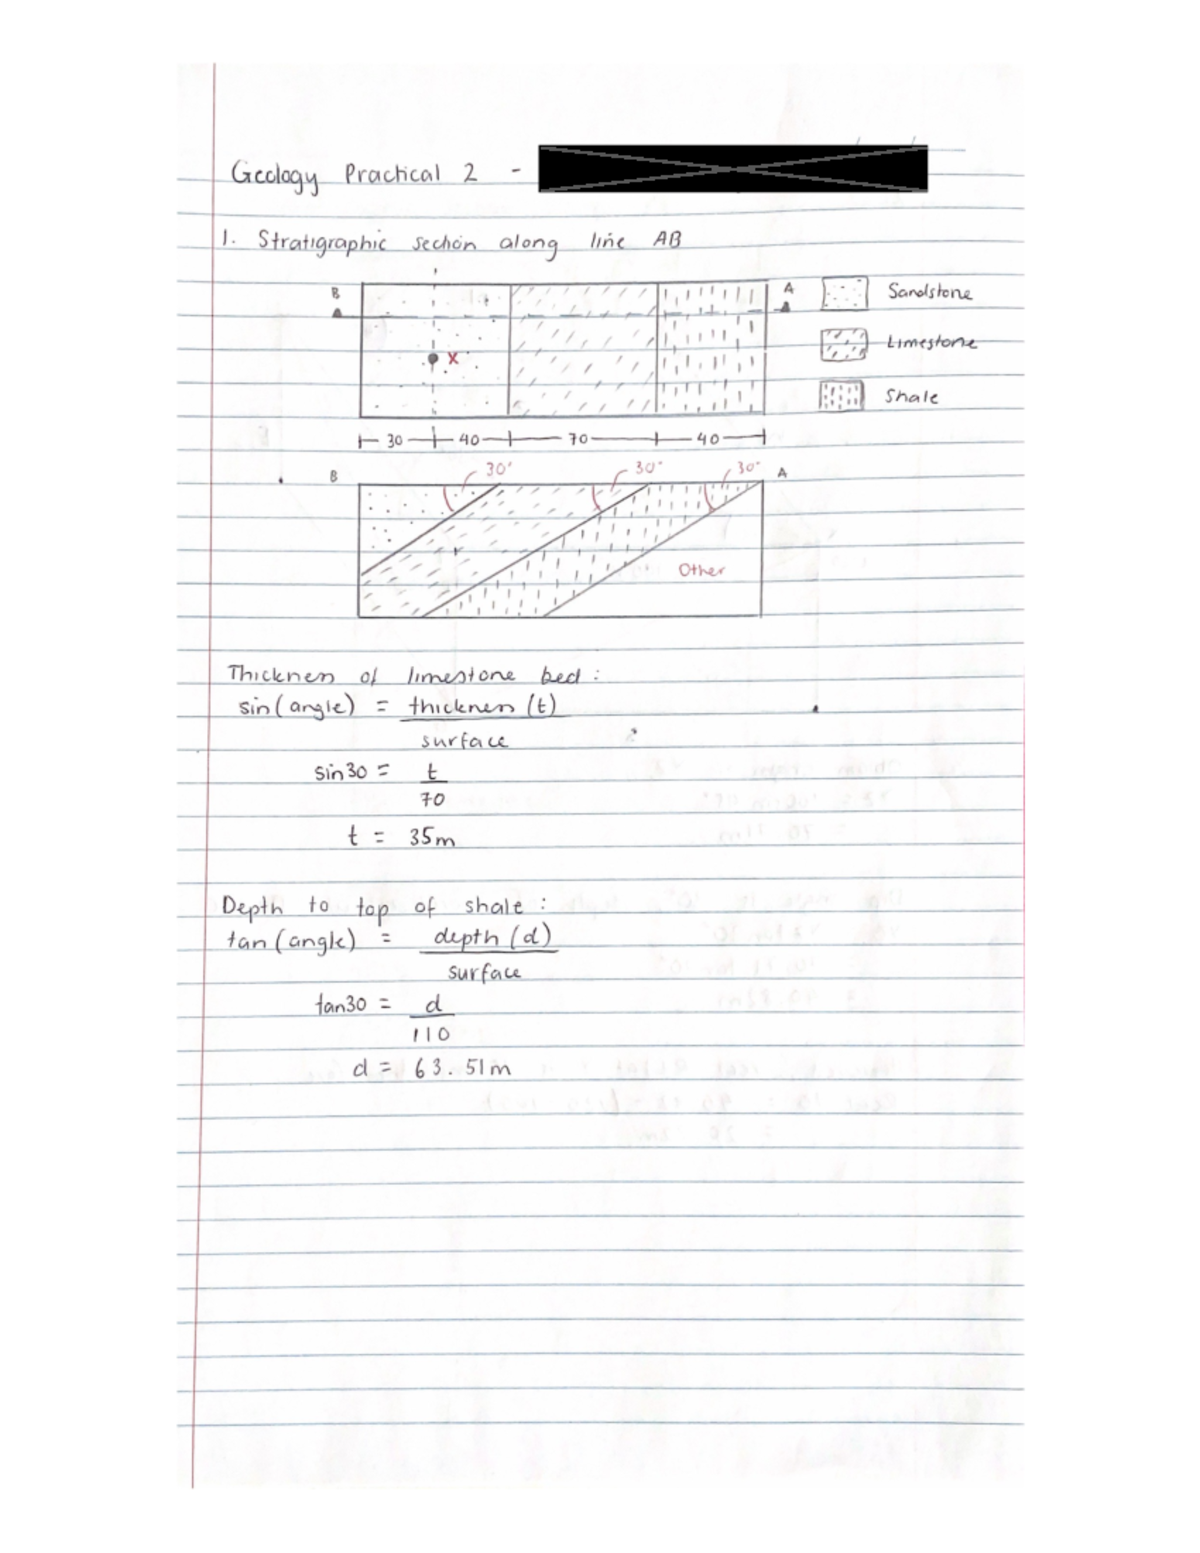 Geology Practical 2 -
1. Stratigraphic section along line AB
B
A
Sandstone
x
Limestone
Shale
30 40 70 40
B 30° 30° 30° A
Other
Thickness of limestone bed :
sin(angle) = thickness (t)
surface
sin30 = t
70
t = 35m
Depth to top of shale :
tan(angle) = depth (d)
surface
tan30 = d
110
d = 63.51m